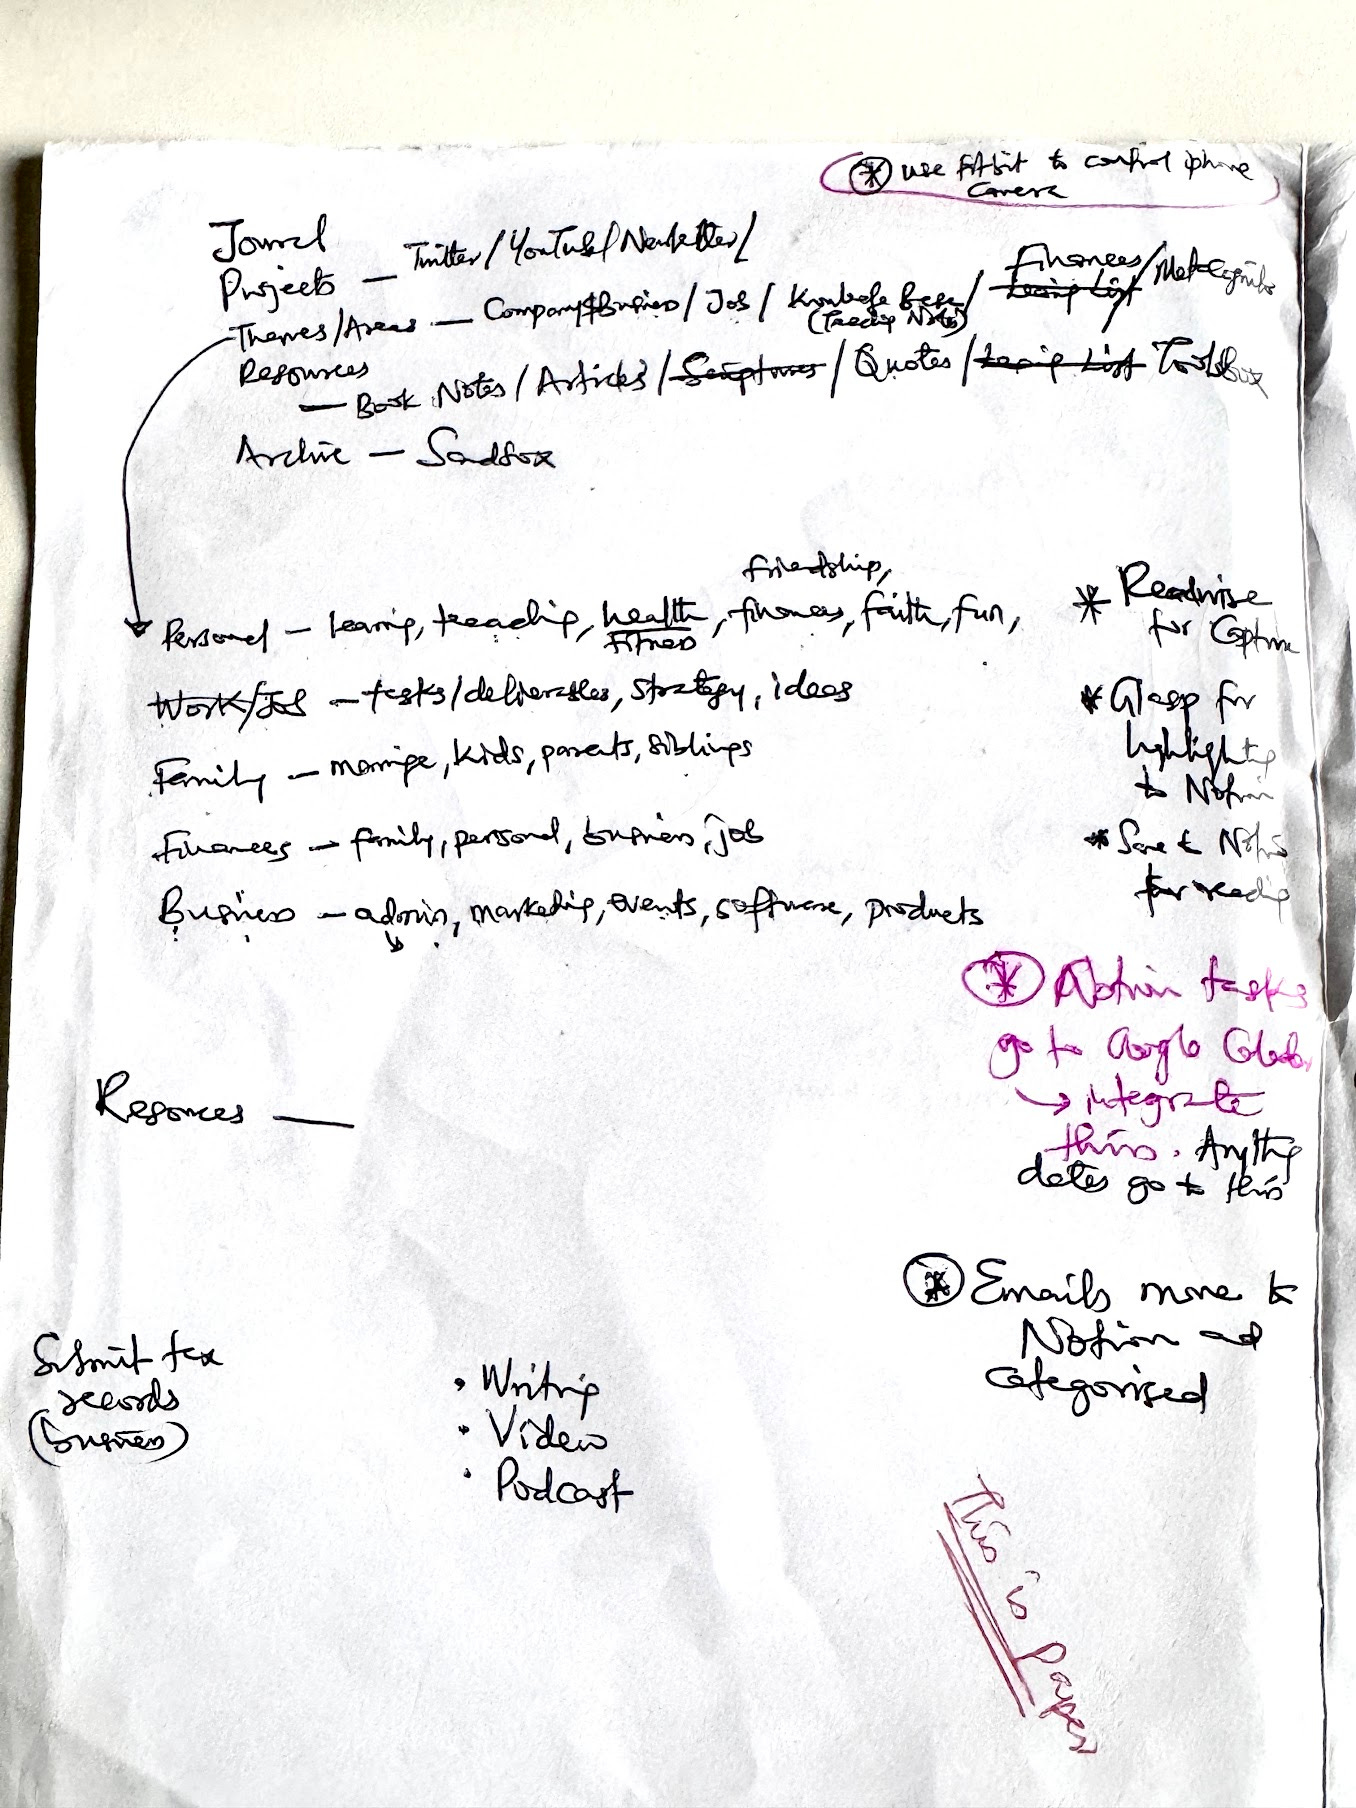 * use fitbit to control iphone
camera
Journal
Projects — Twitter/YouTube/Newsletter/
Finances/Metacognition
Themes/Areas — Company & Business/Job/Knowledge Base/Learning List/
(Teaching Notes)
Resources
— Book Notes/Articles/Scriptures/Quotes/Learning List Toolbox
Archive — Sandbox
friendship,
Personal — learning, teaching, health, finances, faith, fun,
fitness
Work/Job — tasks/deliverables, strategy, ideas
Family — marriage, kids, parents, siblings
Finances — family, personal, business, job
Business — admin, marketing, events, software, products
* Readwise
for Capture
* Glasp for
highlighting
to Notion
* Save to Notion
for reading
* Notion tasks
go to Google Calendar
→ integrate
this. Anything
dates go to this
Resources —
* Emails move to
Notion and
categorised
Submit tax
records
(business)
• Writing
• Video
• Podcast
This is paper